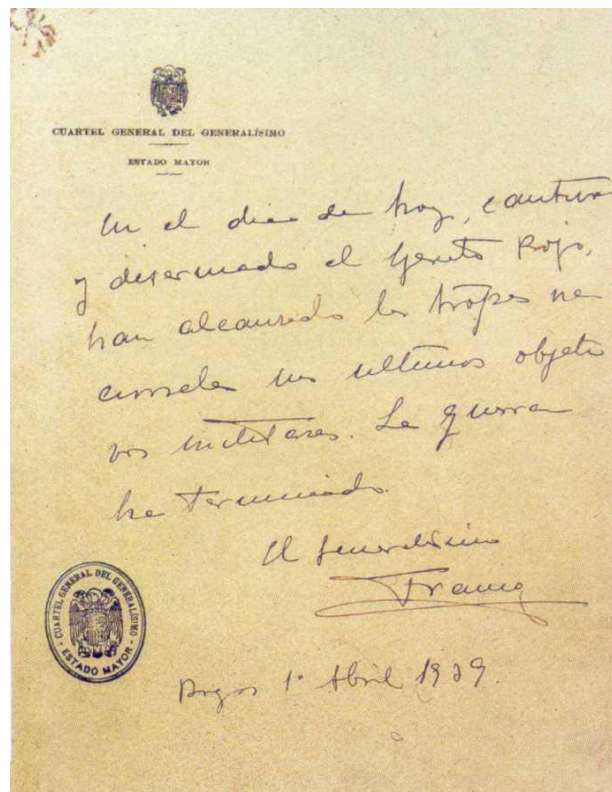 CUARTEL GENERAL DEL GENERALÍSIMO
ESTADO MAYOR
En el dia de hoy, cautivo
y desarmado el Ejercito Rojo,
han alcanzado las tropas na
cionales sus ultimos objeti
vos militares. La guerra
ha terminado.
El Generalisimo
Franco
CUARTEL GENERAL DEL GENERALÍSIMO
ESTADO MAYOR
Burgos 1º Abril 1939.